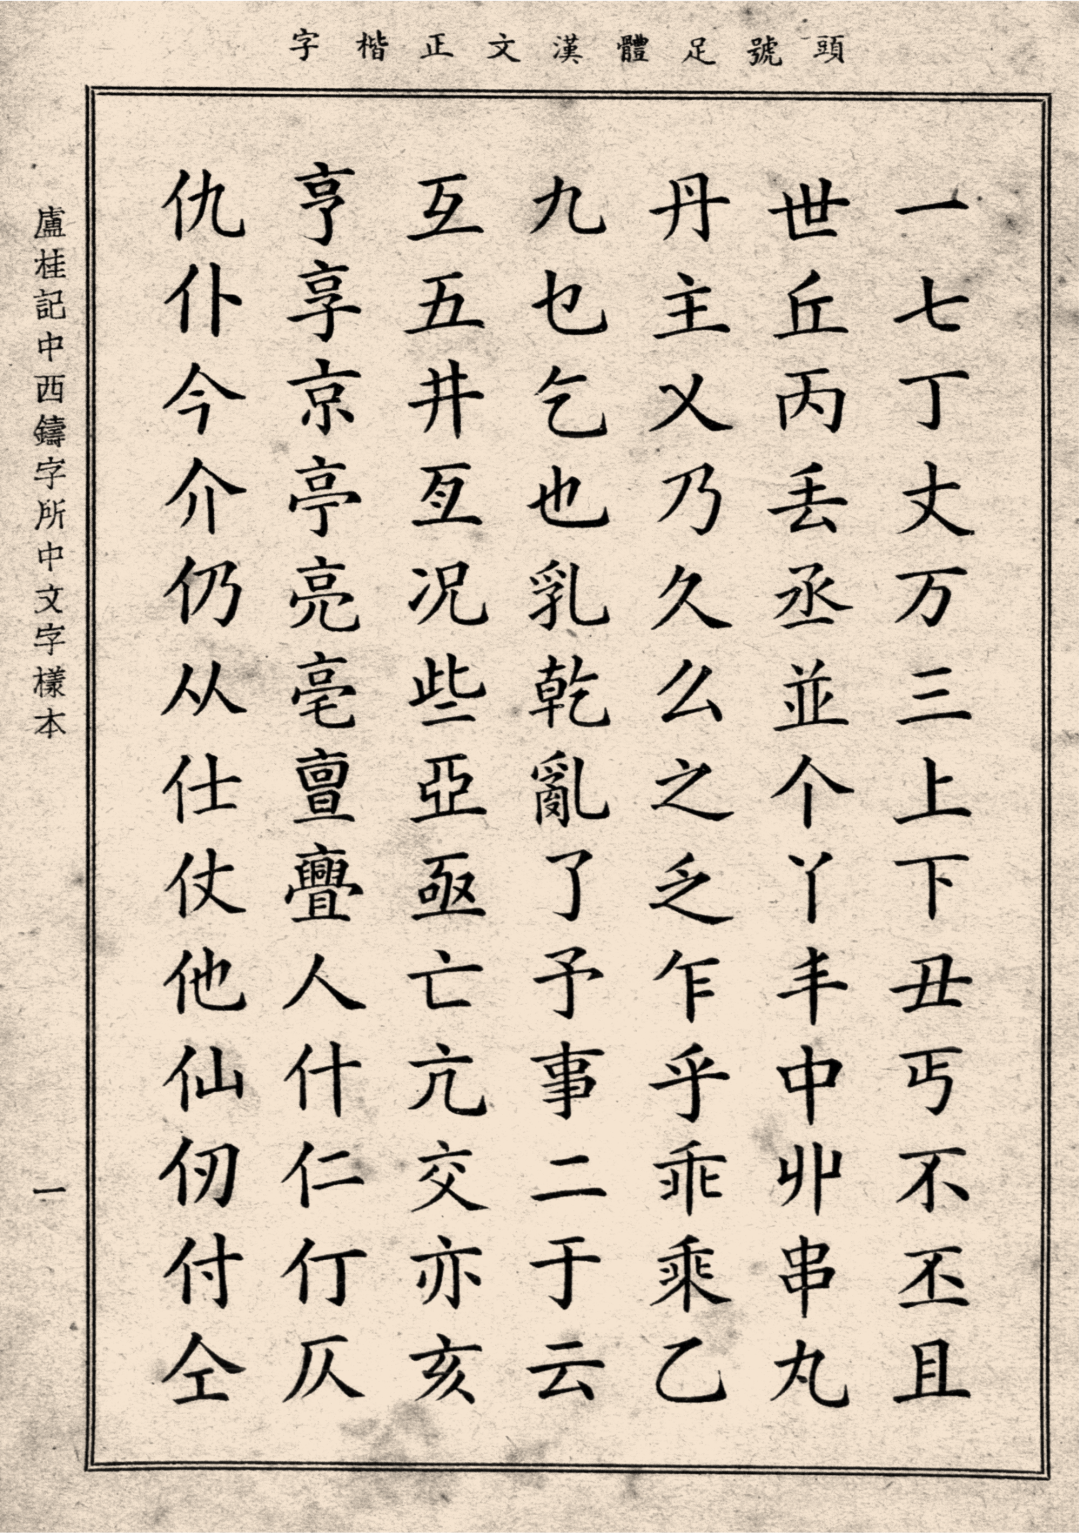 頭號足體漢文正楷字
一七丁丈万三上下丑丐不丕且
世丘丙丟丞並个丫丰中丱串丸
丹主乂乃久么之乏乍乎乖乘乙
九乜乞也乳乾亂了予事二于云
互五井亙况些亞亟亡亢交亦亥
亨享京亭亮亳亶亹人什仁仃仄
仇仆今介仍从仕仗他仙仞付仝
盧桂記中西鑄字所中文字樣本
一